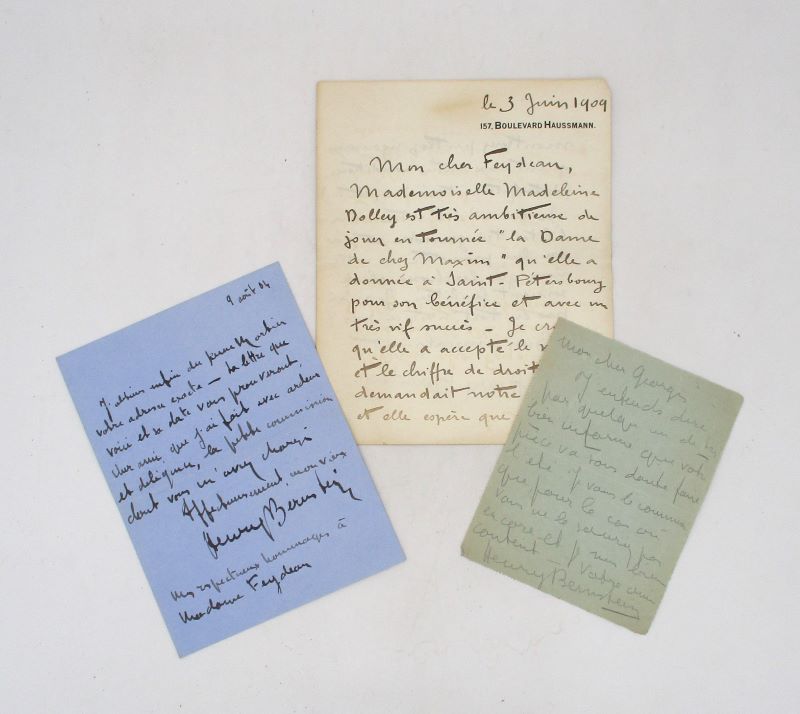 le 3 Juin 1909
157, BOULEVARD HAUSSMANN.
Mon cher Feydeau,
Mademoiselle Madeleine
Dolley est très ambitieuse de
jouer en tournée "la Dame
de chez Maxim" qu'elle a
donnée à Saint-Pétersbourg
pour son bénéfice et avec un
très vif succès – Je
qu'elle a accepté le
et le chiffre de droit
demandait notre
et elle espère que
9 août 04
enfin du
votre adresse exacte – la lettre que
voici et sa date vous prouveront
cher ami, que j'ai fait avec ardeur
et la petite commission
dont vous m'avez chargé
Affectueusement, mon vieux
Henry Bernstein
Mes respectueux hommages à
Madame Feydeau
Mon cher Georges
J'entends dire
par quelqu'un de très
bien informé que votre
pièce va sans doute faire
l'été. Je vous le
que pour le cas où
vous ne le sauriez pas
encore et je suis bien
content – Votre ami
Henry Bernstein